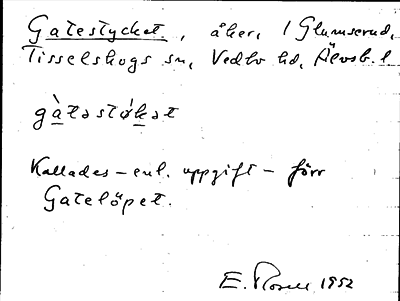 Gatestycket, åker, i Glumserud,
Tisselskogs sn, Vedbo hd, Älvsb. l.
gàtəstýkət
Kallades – enl. uppgift – förr
Gatelöpet.
E. Rosell 1952